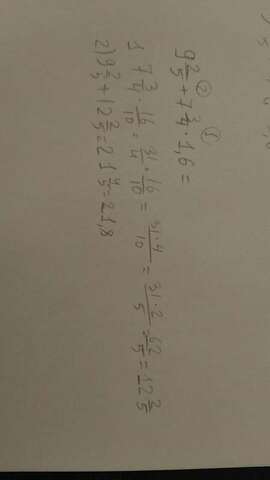 ② ①
9 2/5 + 7 3/4 · 1,6 =
1 7 3/4 · 16/10 = 31/4 · 16/10 = 31·4/10 = 31·2/5 = 62/5 = 12 2/5
2) 9 2/5 + 12 2/5 = 21 4/5 = 21,8